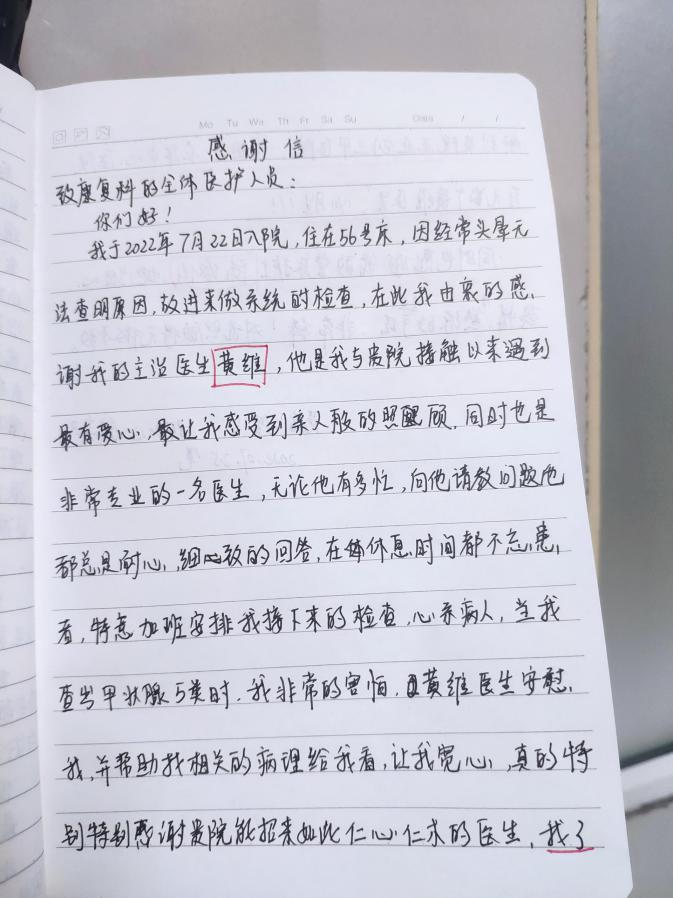 Mo Tu We Th Fr Sa Su Date / /
感谢信
致康复科的全体医护人员:
你们好!
我于2022年7月22日入院,住在56号床,因经常头晕无
法查明原因,故进来做系统的检查,在此我由衷的感
谢我的主治医生黄维,他是我与贵院接触以来遇到
最有爱心、最让我感受到亲人般的照顾,同时也是
非常专业的一名医生,无论他有多忙,向他请教问题他
都总是耐心、细致的回答,在休息时间都不忘患
者,特意加班安排我接下来的检查,心系病人,当我
查出甲状腺5类时,我非常的害怕,黄维医生安慰
我,并帮助找相关的病理给我看,让我宽心,真的特
别特别感谢贵院能招来如此仁心仁术的医生,我了